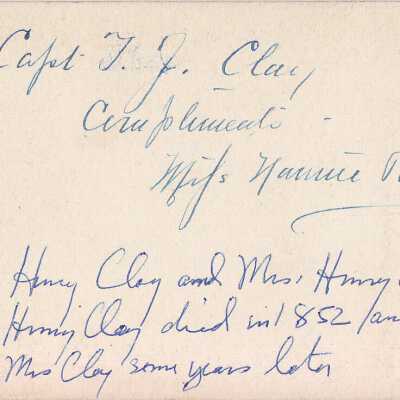 Capt T. J. Clay
Compliments -
Miss Nannie
Henry Clay and Mrs. Henry
Henry Clay died in 1852 / an
Mrs Clay some years later